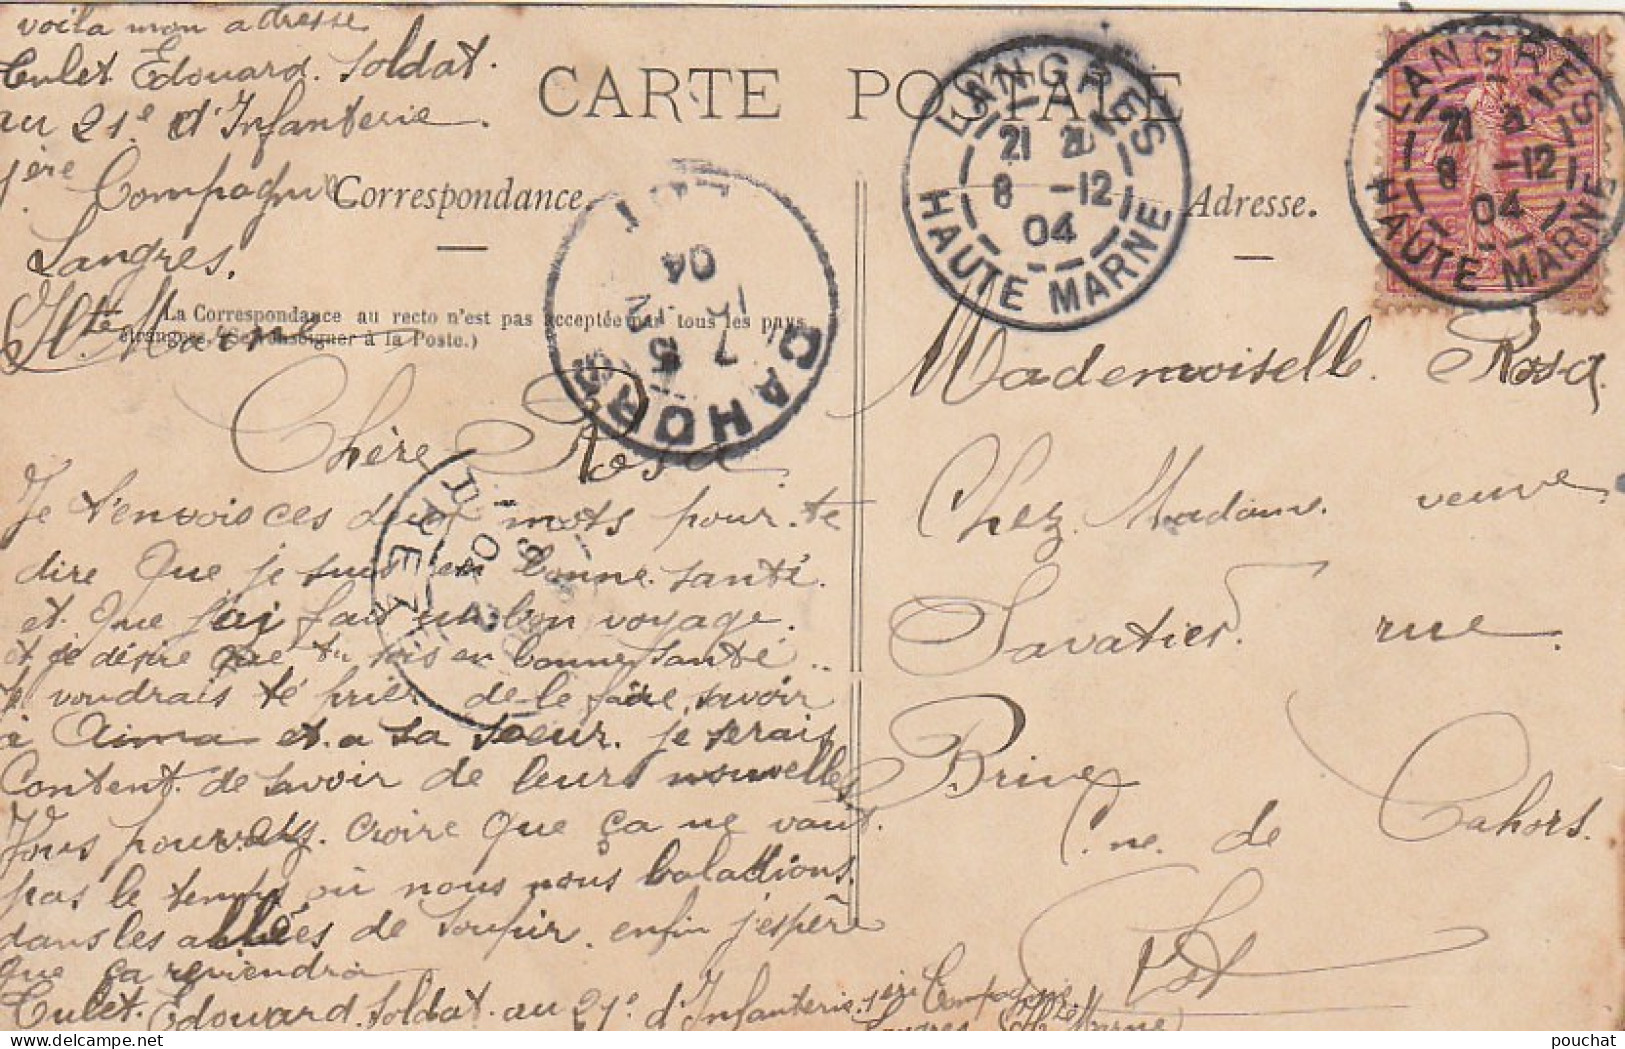 voila mon adresse
Culet Edouard. soldat.
au 21e d'Infanterie.
1ère Compagnie
Langres.
Hte Marne
CARTE POSTALE
Correspondance.
Adresse.
La Correspondance au recto n'est pas acceptée par tous les pays
étrangers. (Se renseigner à la Poste.)
LANGRES
21
8 -12
04
HAUTE MARNE
LANGRES
21
8 -12
04
HAUTE MARNE
CAHORS
LOT
04
Chère Rosa
Je t'envois ces deux mots pour te
dire que je suis en bonne santé.
et que j'ai fais un bon voyage.
et je désire que tu sois en bonne santé..
Je voudrais té prier de le faire savoir
à Aima et a sa soeur. je serais
Content. de savoir de leurs nouvelles,
Vous pourvez. croire que ça ne vaut.
pas le temps où nous nous baladions.
dans les allées de soupir. enfin j'espère
que ça reviendra
Culet. Edouard. soldat. au 21e d'Infanterie. 1ère Compagnie
Langres (Hte Marne)
Mademoiselle. Rosa.
Chez Madame. veuve
Savatier. rue.
Brive
Cne. de Cahors.
Lot
pouchat